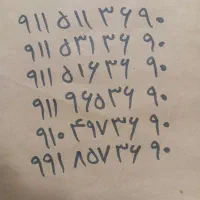 ۹۱۱ ۵۱۱ ۳۶ ۹۰
۹۱۱ ۵۳۱ ۳۶ ۹۰
۹۱۱ ۵۱۶ ۳۶ ۹۰
۹۱۱ ۹۶۵ ۳۶ ۹۰
۹۱۰ ۴۹۷ ۳۶ ۹۰
۹۹۱ ۸۵۷ ۳۶ ۹۰